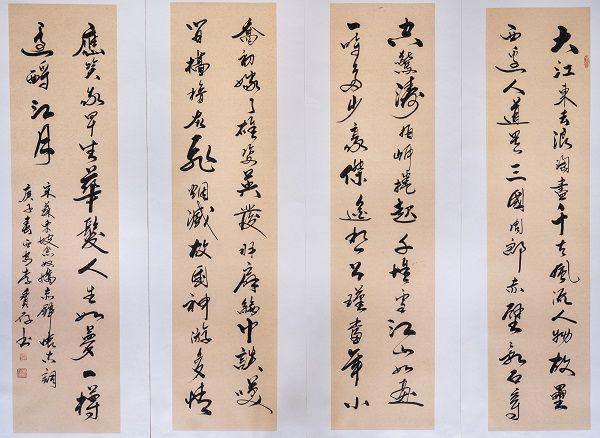 大江東去浪淘盡千古風流人物故壘
西邊人道是三國周郎赤壁亂石穿
空驚濤拍岸捲起千堆雪江山如畫
一時多少豪傑遙想公瑾當年小
喬初嫁了雄姿英發羽扇綸巾談笑
間檣櫓灰飛烟滅故國神游多情
應笑我早生華髮人生如夢一樽
還酹江月
宋蘇東坡念奴嬌赤壁懷古詞
庚子春書